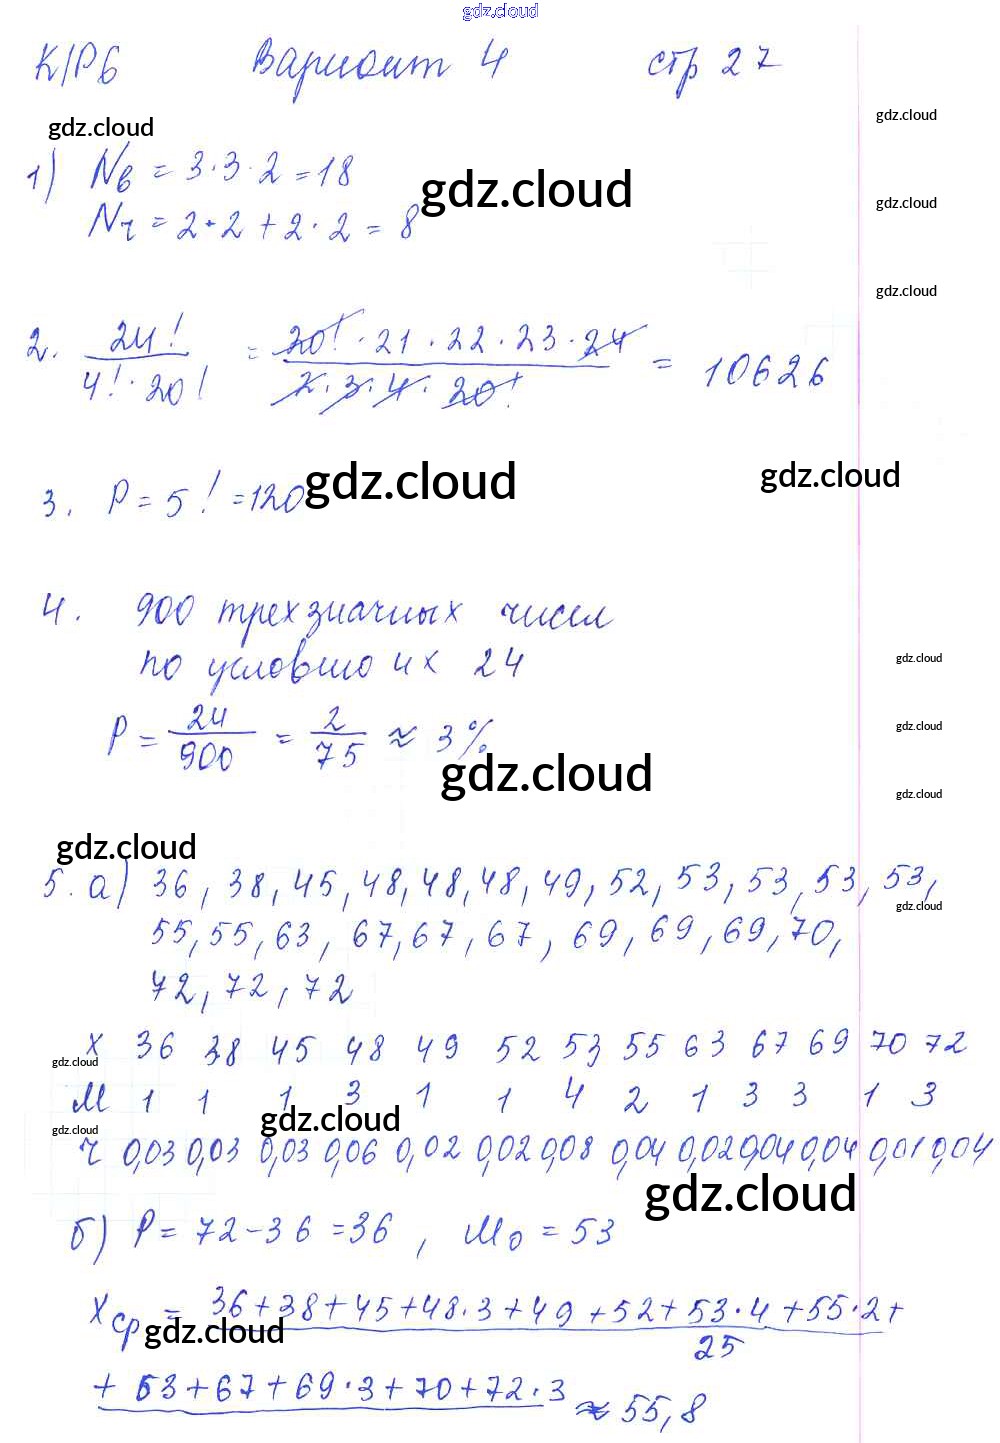 gdz.cloud
К/Р6 Вариант 4 стр 27
gdz.cloud
gdz.cloud
1) Nв = 3·3·2 = 18
gdz.cloud
gdz.cloud
Nч = 2·2 + 2·2 = 8
gdz.cloud
2. 24! / 4!·20! = 20!·21·22·23·24 / 2·3·4·20! = 10626
3. P = 5! = 120
gdz.cloud
gdz.cloud
4. 900 трехзначных чисел
по условию их 24
gdz.cloud
P = 24/900 = 2/75 ≈ 3%
gdz.cloud
gdz.cloud
gdz.cloud
gdz.cloud
5. а) 36, 38, 45, 48, 48, 48, 49, 52, 53, 53, 53, 53,
gdz.cloud
55, 55, 63, 67, 67, 67, 69, 69, 69, 70,
72, 72, 72
x 36 38 45 48 49 52 53 55 63 67 69 70 72
gdz.cloud
M 1 1 1 3 1 1 4 2 1 3 3 1 3
gdz.cloud
gdz.cloud
ч 0,03 0,03 0,03 0,06 0,02 0,02 0,08 0,04 0,02 0,04 0,04 0,01 0,04
gdz.cloud
б) P = 72 - 36 = 36, Mo = 53
xср = 36+38+45+48·3+49+52+53·4+55·2+
gdz.cloud
25
+ 63+67+69·3+70+72·3 ≈ 55,8